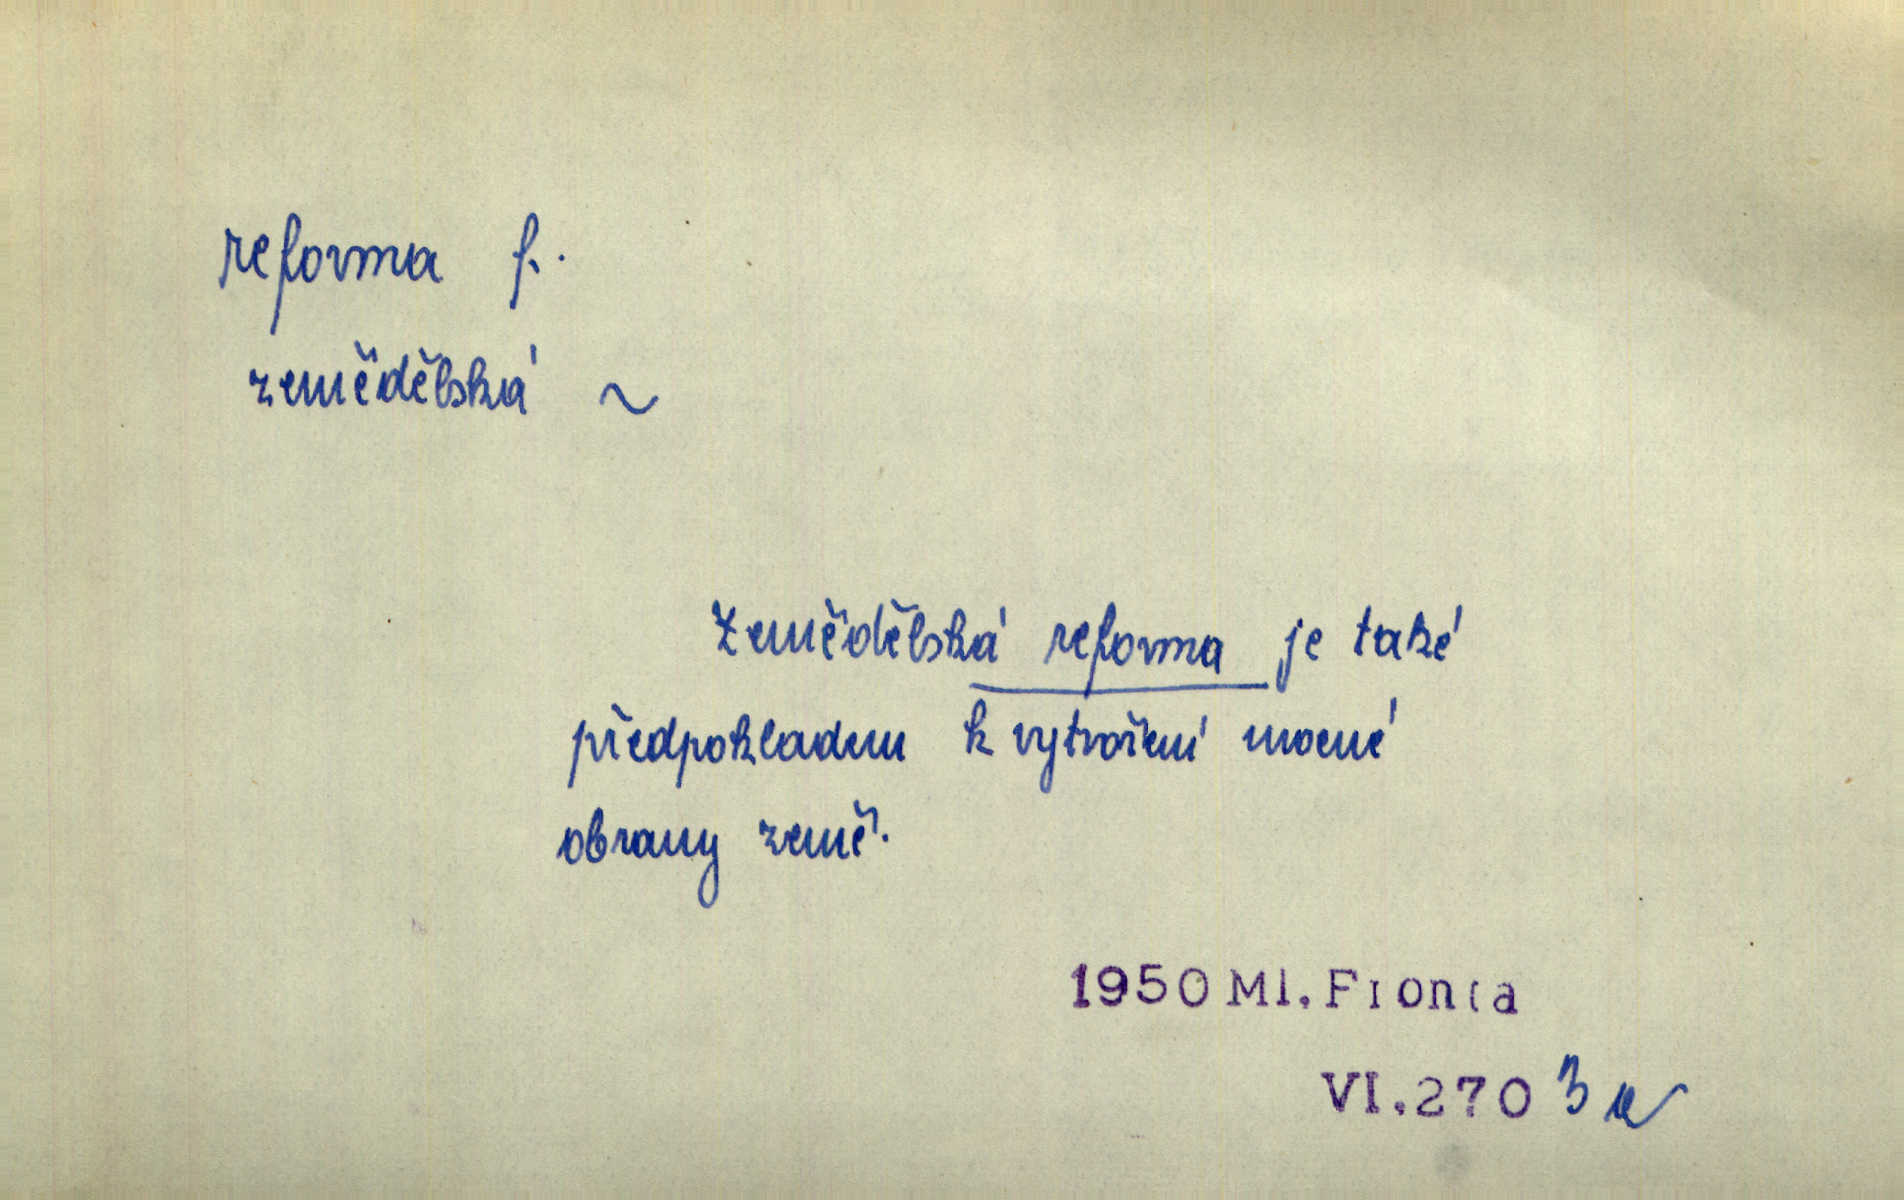 reforma f.
zemědělská ~
Zemědělská reforma je také
předpokladem k vytvoření mocné
obrany země.
1950 Ml. Fronta
VI.270 3